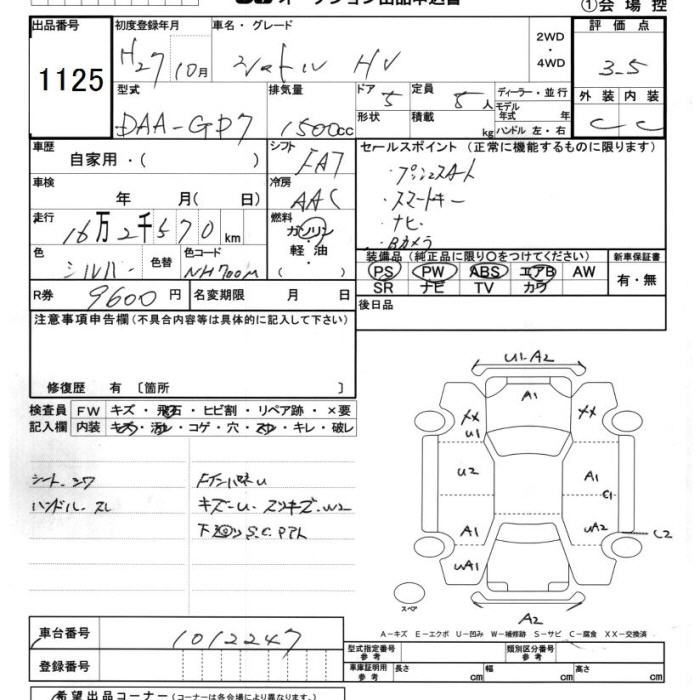 オークション出品申込書
①会場控
出品番号 初度登録年月 車名・グレード 2WD ・ 4WD 評価点
1125 H27 10月 シャトル HV 3.5
型式 排気量 ドア 5 定員 5人 ディーラー・並行 外装 内装
DAA-GP7 1500cc 形状 積載 kg モデル年式 年 C C
ハンドル 左・右
車歴 シフト FAT セールスポイント (正常に機能するものに限ります)
自家用・( ) ・プッシュスタート
車検 冷房 ・スマートキー
年 月( 日) AAC ・ナビ
走行 燃料 ・Bカメラ
16万2千570km ガソリン
色 色替 色コード 軽油 装備品 (純正品に限り○をつけてください) 新車保証書
シルバー NH700M ( ・ ) PS PW ABS エアB AW 有・無
SR ナビ TV カワ
R券 9600円 名変期限 月 日 後日品
注意事項申告欄 (不具合内容等は具体的に記入して下さい)
修復歴 有 [箇所 ]
検査員 FW キズ・飛石・ヒビ割・リペア跡・×要
記入欄 内装 キズ・汚レ・コゲ・穴・スレ・キレ・破レ
シート・コワ
ハンドル・スレ
キズ・U、スリキズ・W2
U1・A2
A1
XX XX
U1
U2 A1
C1
A1 UA2 C2
UA1
スペア
A2
A−キズ E−エクボ U−凹み W−補修跡 S−サビ C−腐食 XX−交換済
車台番号 1012247
型式指定番号 参考 類別区分番号 参考
登録番号 車庫証明用 参考 長さ cm 幅 cm 高さ cm
希望出品コーナー (コーナーは各会場により異なります。)